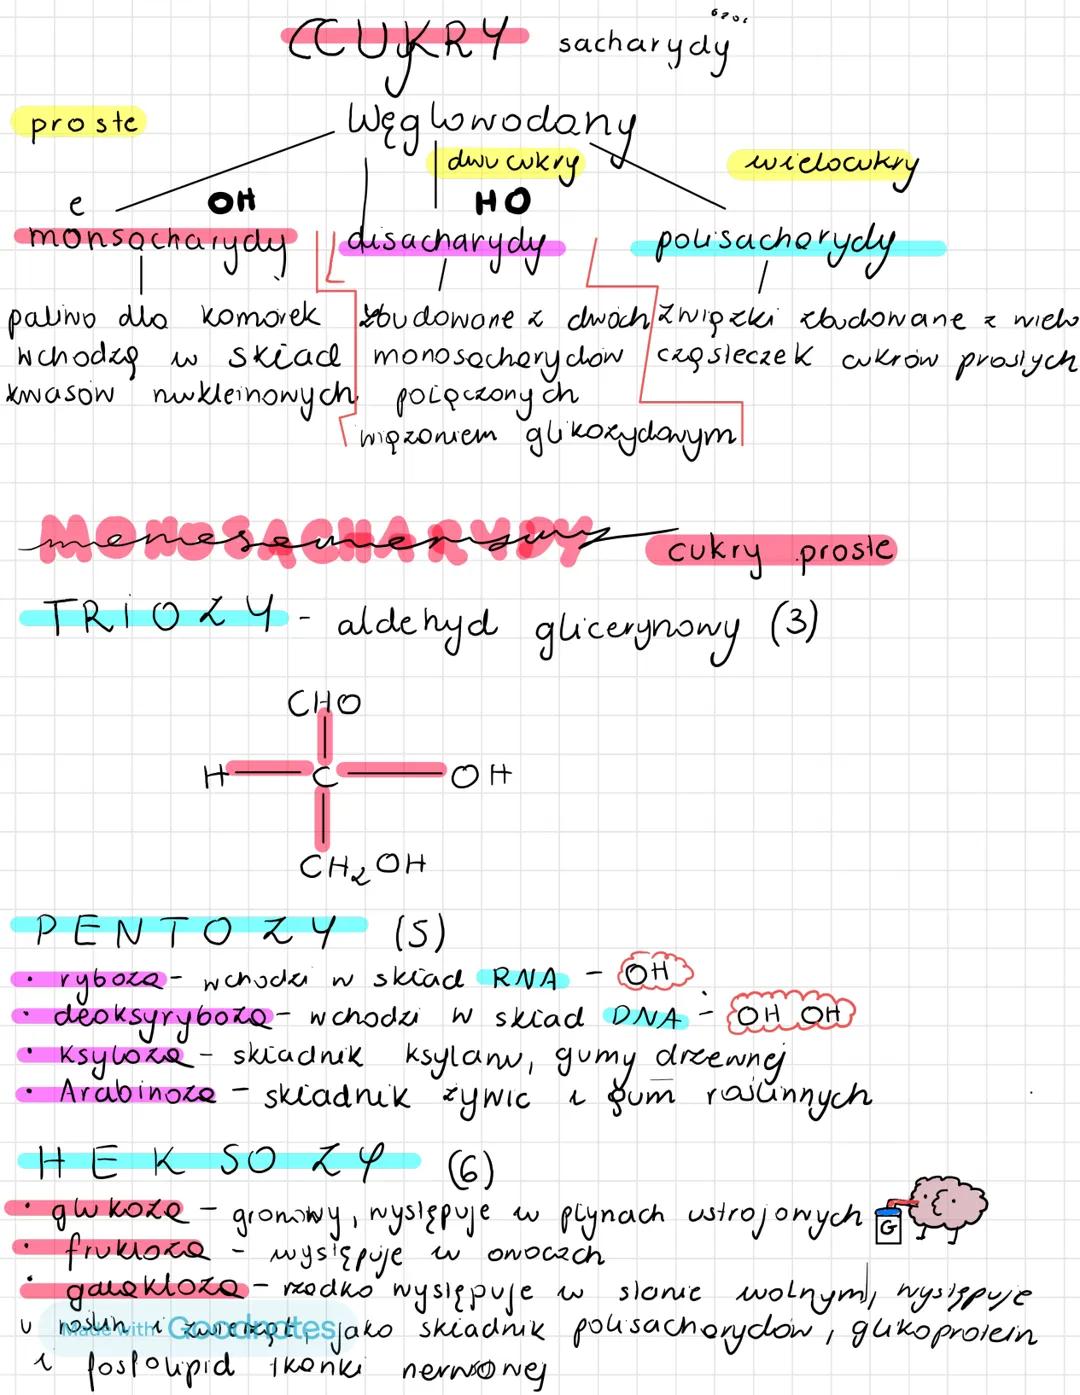 CUKRY sacharydy
węglowodany
proste
dwucukry
wielocukry
e OH HO
monsacharydy disacharydy polisacharydy
paliwo dla komórek
wchodzą w skład
kwasów nukleinowych
zbudowane z dwóch
monosacharydów
połączonych
wiązaniem glikozydowym
związki zbudowane z wielu
cząsteczek cukrów prostych
MONOSACHARYDY cukry proste
TRIOZY - aldehyd glicerynowy (3)
CHO
H C OH
CH2OH
PENTOZY (5)
• ryboza - wchodzi w skład RNA - OH
• deoksyryboza - wchodzi w skład DNA - OH OH
• Ksyloza - składnik ksylanu, gumy drzewnej
• Arabinoza - składnik żywic i gum roślinnych
HEKSOZY (6)
• glukoza - gronowy, występuje w płynach ustrojowych
G
• fruktoza - występuje w owocach
• galaktoza - rzadko występuje w stanie wolnym, występuje
u roślin i zwierząt jako składnik polisacharydów, glikoprotein
Made with Goodnotes
i fosfolipid tkanki nerwowej